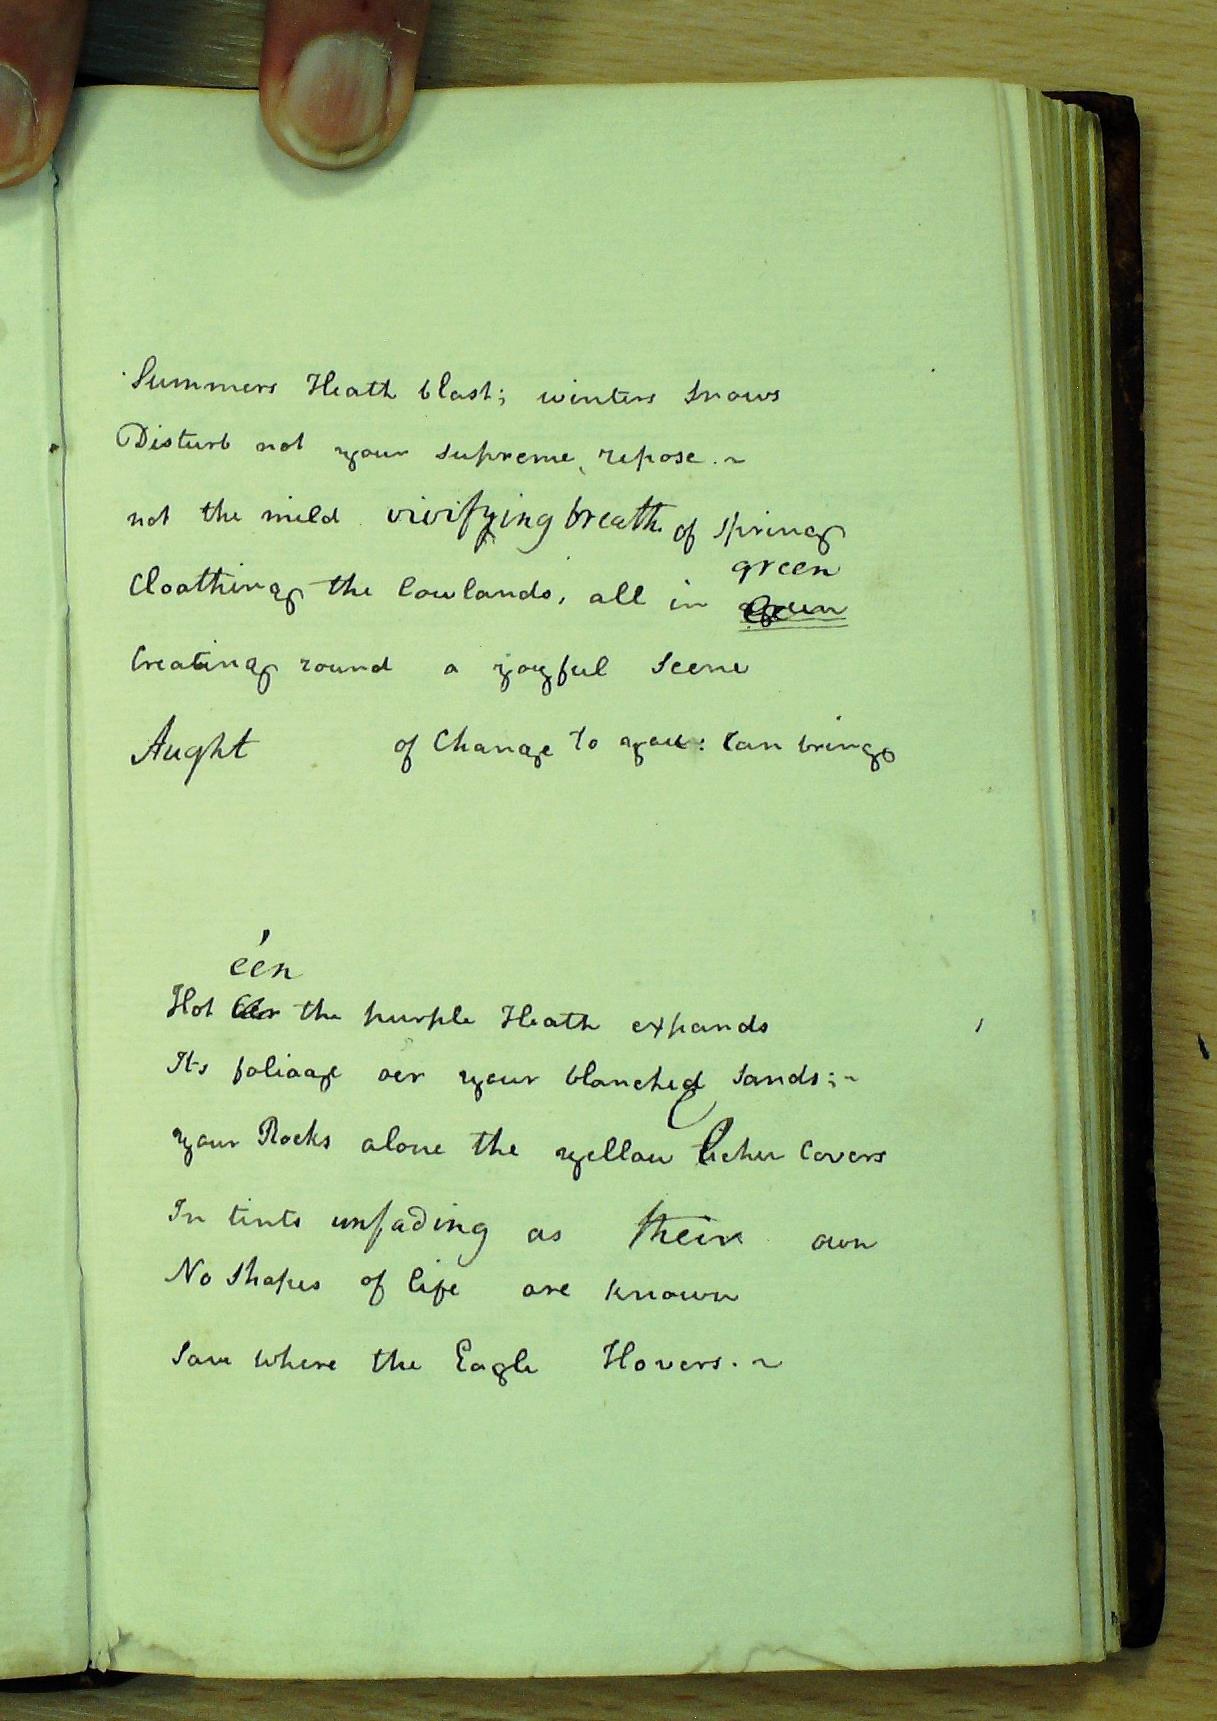 Summers Heath blast; winters snows
Disturb not your supreme, repose.~
not the mild vivifying breath of spring
green
Cloathing the lowlands, all in
Creating round a yoyful Scene
Aught of Change to you: Can bring
één
Not the purple Heath expands
Its foliage oer your blanched sands;~
your Rocks alone the yellow Covers
In tints unfading as their own
No shapes of life are known
Save where the Eagle Hovers.~